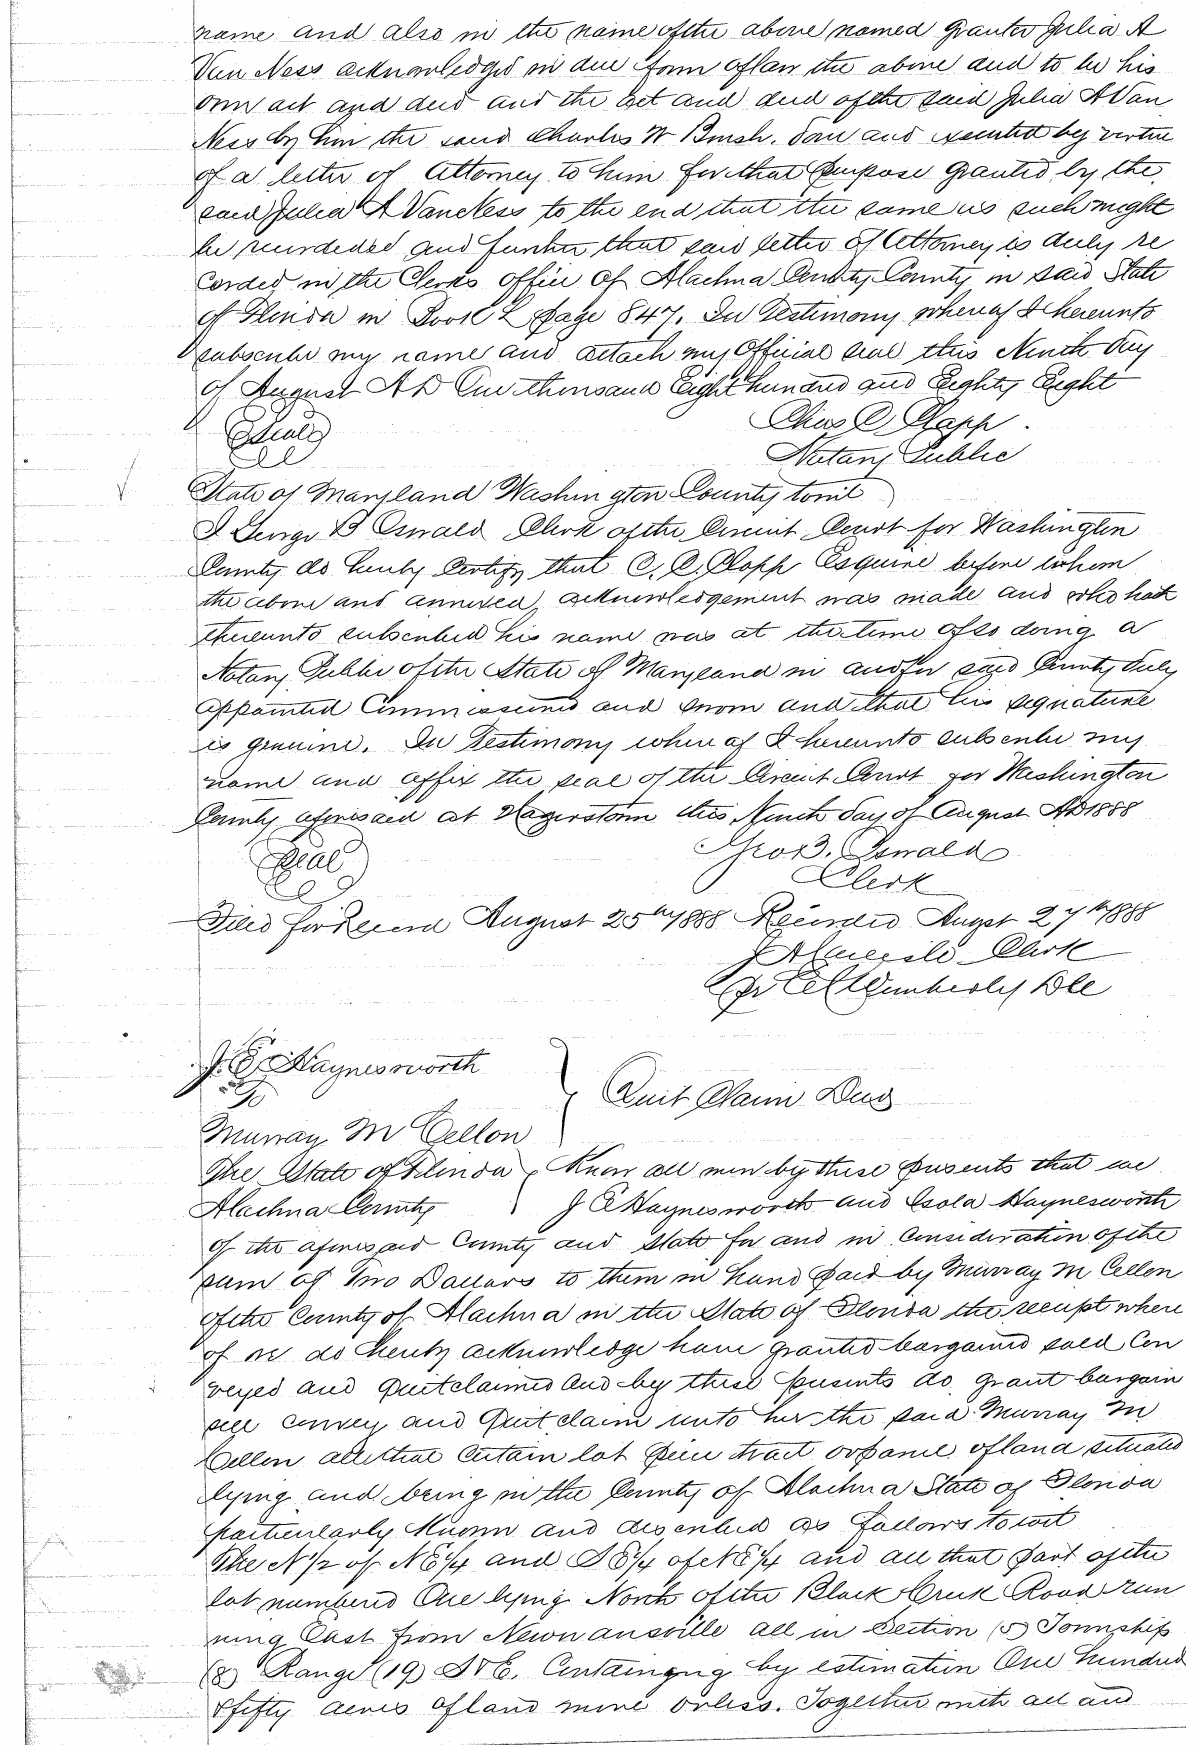 name and also in the name of the above named grantor Julia A
Van Ness acknowledged in due form of law the above deed to be his
own act and deed and the act and deed of the said Julia A Van
Ness by him the said Charles W Bush. done and executed by virtue
of a letter of Attorney to him for that purpose granted by the
said Julia A Van Ness to the end that the same as such might
be recorded and further that said letter of Attorney is duly re
corded in the Clerks office of Alachua County County in said State
of Florida in Book L page 847. In Testimony whereof I hereunto
subscribe my name and attach my Official seal this Ninth day
of August A D One thousand Eight hundred and Eighty Eight
Chas C Clapp
Seal
Notary Public
State of Maryland Washington County towit
I George B Oswald Clerk of the Circuit Court for Washington
County do hereby Certify that C. C. Clapp Esquire before whom
the above and annexed acknowledgement was made and who hath
thereunto subscribed his name was at the time of so doing a
Notary Public of the State of Maryland in and for said County duly
appointed Commissioned and sworn and that his signature
is genuine. In Testimony where of I hereunto subscribe my
name and affix the seal of the Circuit Court for Washington
County aforesaid at Hagerstown this Ninth day of August AD 1888
Geo B. Oswald
Seal
Clerk
Filed for Record August 25th 1888 Recorded Augst 27th 1888
Clerk
Wimberly DC
J. E. Haynesworth
To
Quit Claim Deed
Murray M Cellon
The State of Florida Know all men by these presents that we
Alachua County J E Haynesworth and Isola Haynesworth
of the aforesaid County and State for and in Consideration of the
sum of Two Dollars to them in hand paid by Murray M Cellon
of the County of Alachua in the State of Florida the receipt where
of we do hereby acknowledge have granted bargained sold Con
veyed and Quitclaimed And by these presents do grant bargain
sell convey and Quit claim unto her the said Murray M
Cellon all that certain lot piece tract or parcel of land situated
lying and being in the County of Alachua State of Florida
particularly Known and described as follows to wit
The N 1/2 of NE 1/4 and SE 1/4 of NE 1/4 and all that part of the
lot numbered One lying North of the Black Creek Road run
ning East from Newnansville all in Section (5) Township
(8) Range (19) S & E. Containgng by estimation One hundred
& fifty acres of land more or less. Together with all and